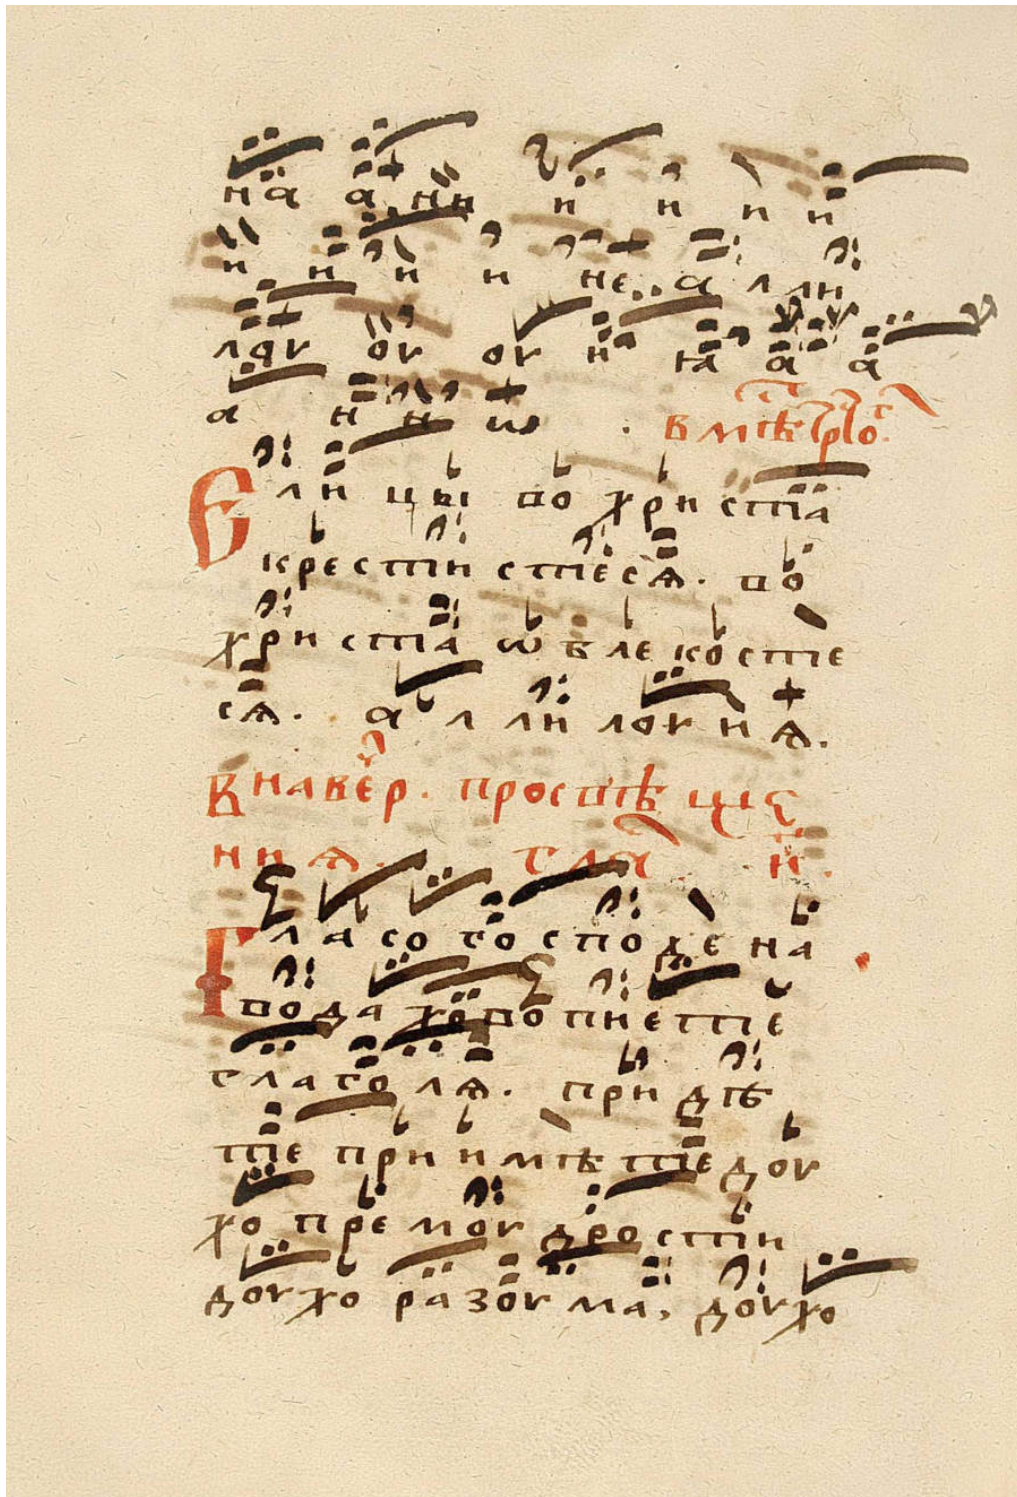 на а ни и и и и
и и и и не а л ли
лоу оу оу и ꙗ а а
а и и ѡ . в мѣ трⷭ҇то
Е ли цы во хри ста
крести стесѧ. во
христа ѡблекосте
сѧ. а л ли лоу и ѧ.
В навер. просвѣще
ниѧ. гла и.
Гласо го споде на
вода хо во пие те
глаго лѧ. придѣ
те приимѣте доу
хо премоу дрости
доухо разоу ма, доухо